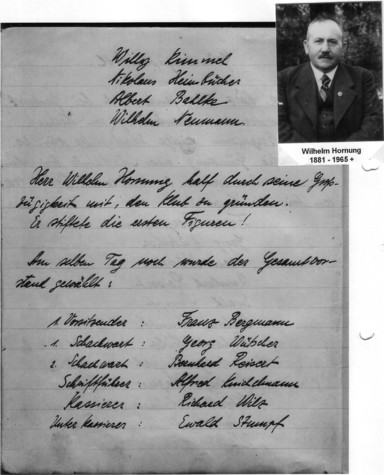 Willy Kimmel
Nikolaus Heimbücher
Albert Bahlke
Wilhelm Neumann
Wilhelm Hornung
1881 - 1965 +
Herr Wilhelm Hornung half durch seine Groß-
zügigkeit mit, den Klub zu gründen.
Er stiftete die ersten Figuren!
Am selben Tag noch wurde der Gesamtvor-
stand gewählt:
1. Vorsitzender : Franz Bergmann
1. Schachwart : Georg Wütscher
2. Schachwart : Bernhard Reisert
Schriftführer : Alfred
Kassierer : Richard Wilz
Unterkassierer : Ewald Stumpf